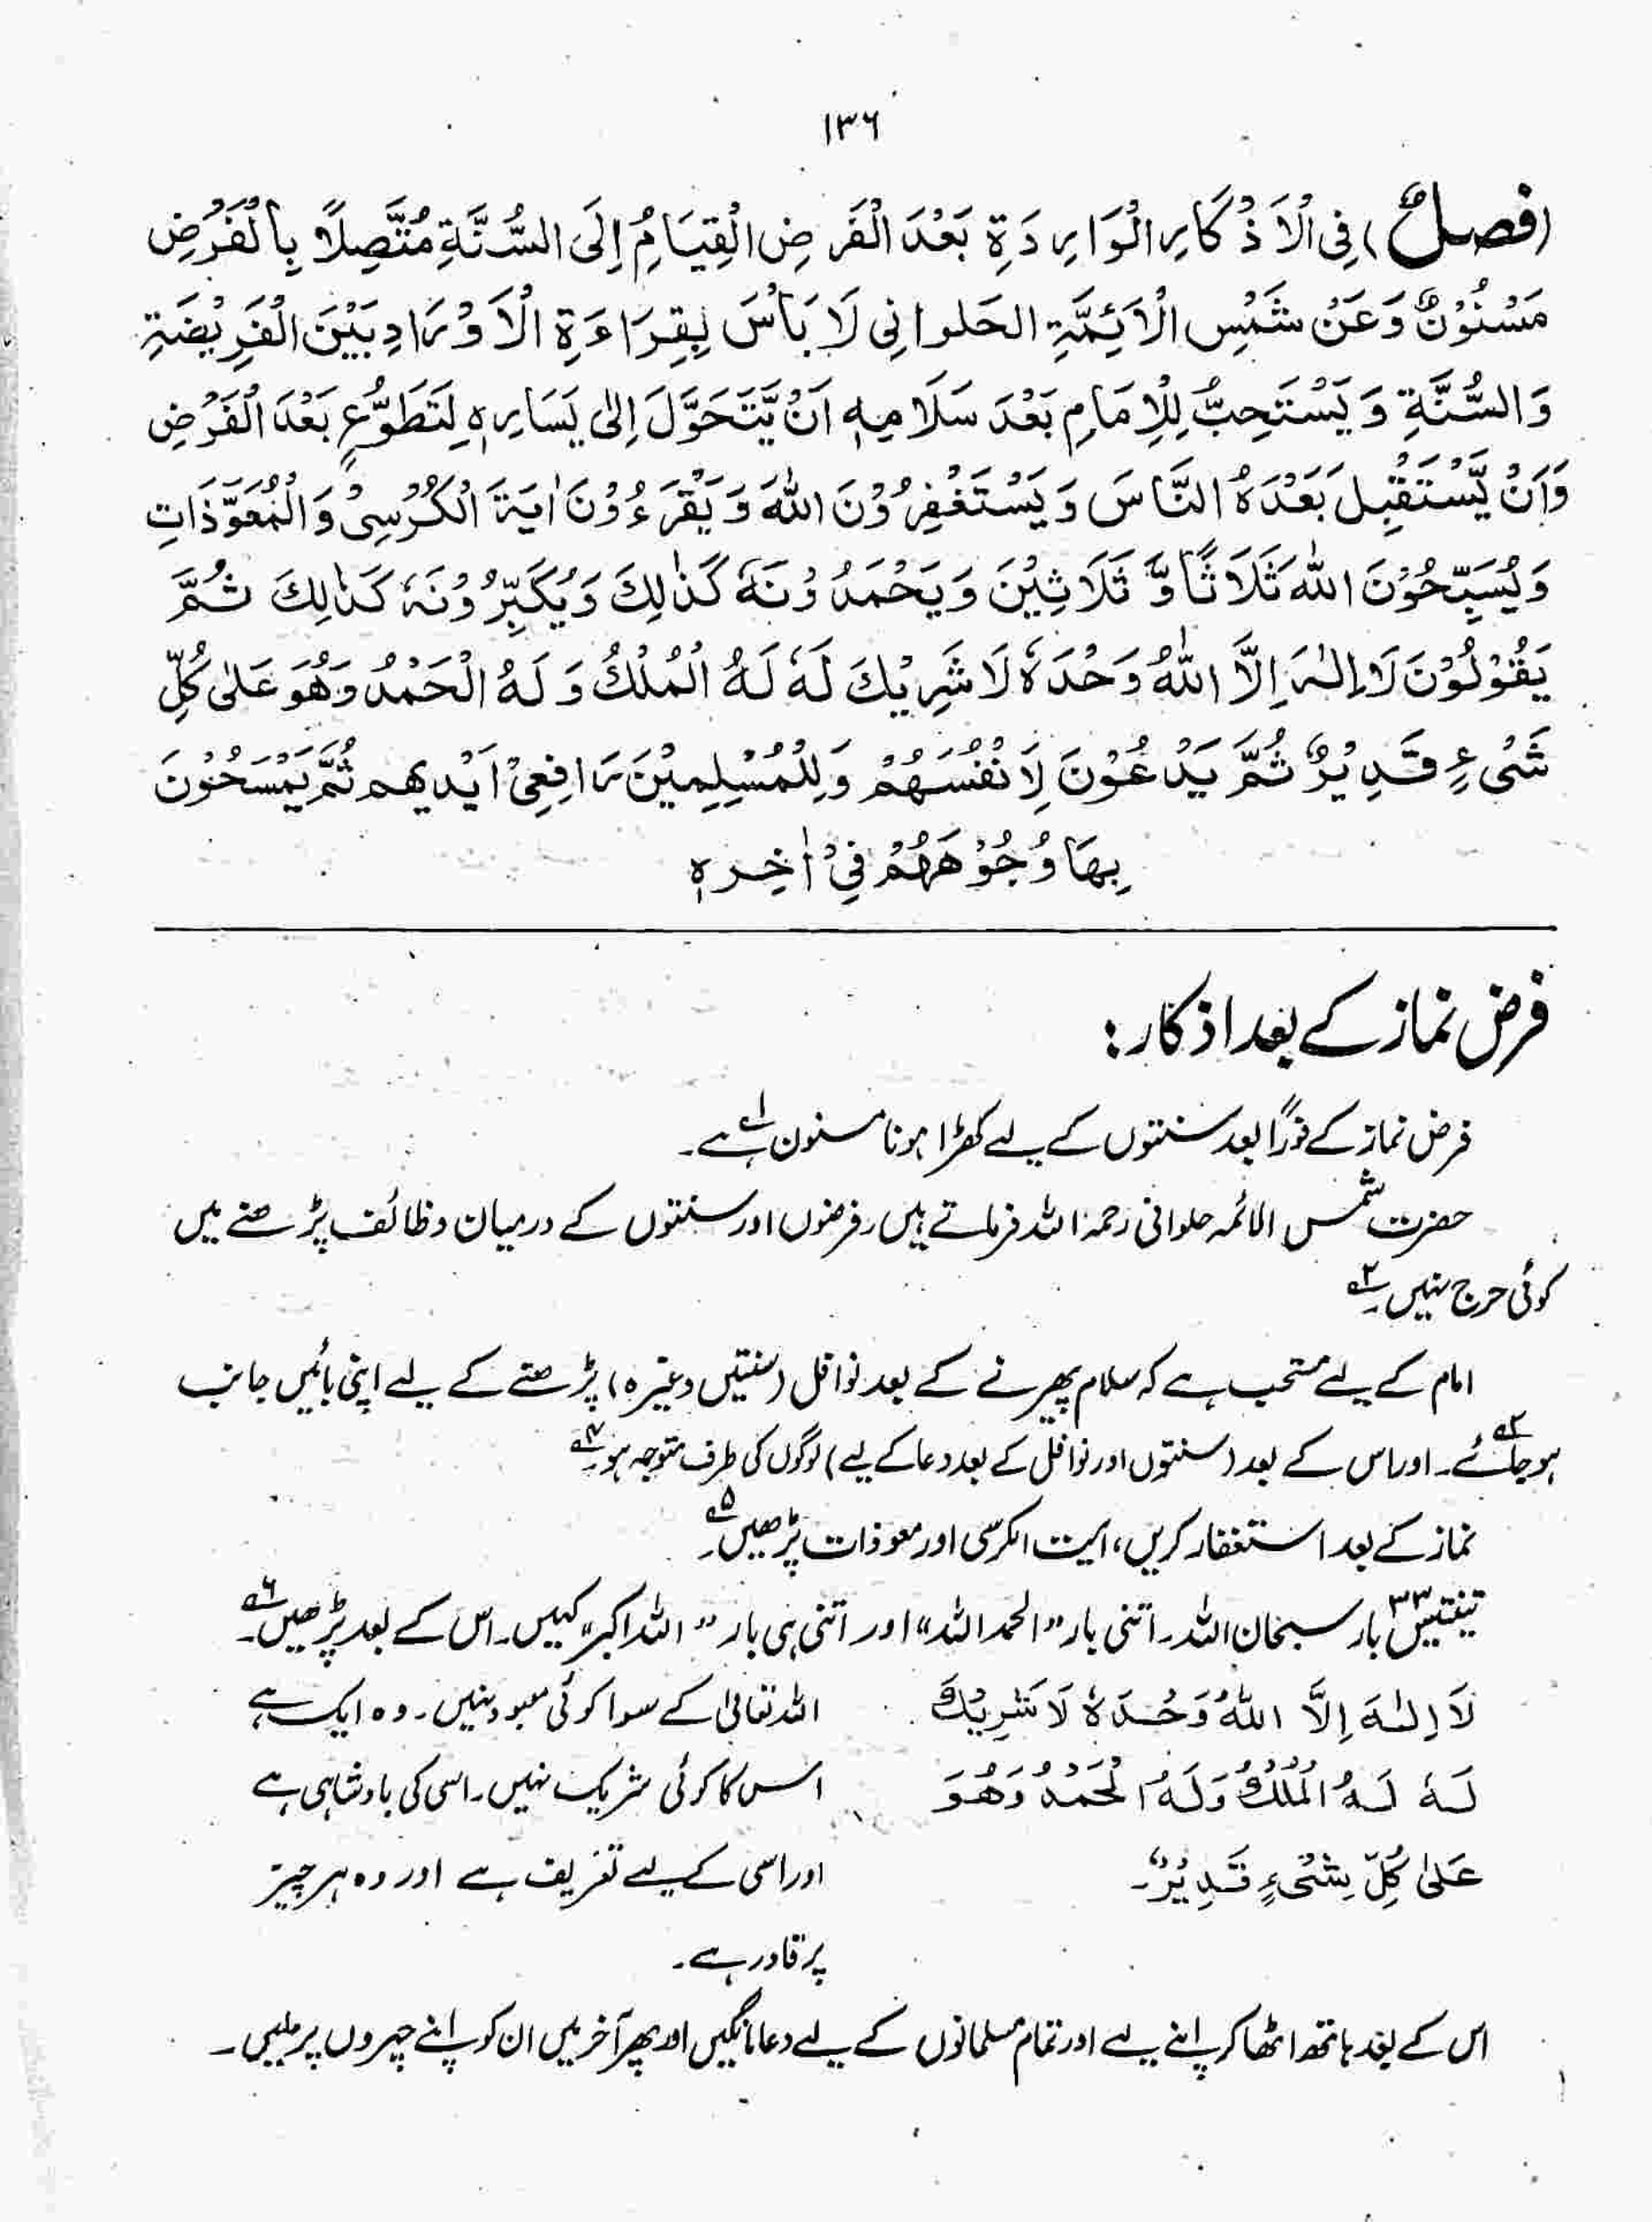 ۱۳۶
(فصلٌ) فِی الْاَذْکَارِ الْوَارِدَةِ بَعْدَ الْفَرْضِ الْقِیَامُ اِلَی السُّنَّةِ مُتَّصِلًا بِالْفَرْضِ
مَسْنُوْنٌ وَعَنْ شَمْسِ الْاَئِمَّةِ الحَلوانِی لَا بَأْسَ بِقِرَاءَةِ الْاَوْرَادِ بَیْنَ الْفَرِیْضَةِ
وَالسُّنَّةِ وَیَسْتَحِبُّ لِلْاِمَامِ بَعْدَ سَلَامِهٖ اَنْ یَّتَحَوَّلَ اِلٰی یَسَارِهٖ لِتَطَوُّعٍ بَعْدَ الْفَرْضِ
وَاَنْ یَّسْتَقْبِلَ بَعْدَهُ النَّاسَ وَیَسْتَغْفِرُوْنَ اللّٰهَ وَیَقْرَءُوْنَ اٰیَةَ الْکُرْسِیْ وَالْمُعَوَّذَاتِ
وَیُسَبِّحُوْنَ اللّٰهَ ثَلَاثًا وَّ ثَلَاثِیْنَ وَیَحْمَدُوْنَهٗ کَذٰلِكَ وَیُکَبِّرُوْنَهٗ کَذٰلِكَ ثُمَّ
یَقُوْلُوْنَ لَا اِلٰهَ اِلَّا اللّٰهُ وَحْدَهٗ لَا شَرِیْكَ لَهٗ لَهُ الْمُلْكُ وَلَهُ الْحَمْدُ وَهُوَ عَلٰی کُلِّ
شَیْءٍ قَدِیْرٌ ثُمَّ یَدْعُوْنَ لِاَنْفُسِهُمْ وَلِلْمُسْلِمِیْنَ رَافِعِیْ اَیْدِیهِم ثُمَّ یَمْسَحُوْنَ
بِهَا وُجُوْهَهُمْ فِیْ اٰخِرِهٖ
فرض نماز کے بعد اذکار:
فرض نماز کے فوراً بعد سنتوں کے لیے کھڑا ہونا مسنون ہے۱۔
حضرت شمس الائمہ حلوانی رحمہ اللہ فرماتے ہیں، فرضوں اور سنتوں کے درمیان وظائف پڑھنے میں
کوئی حرج نہیں۔۲
امام کے لیے مستحب ہے کہ سلام پھیرنے کے بعد نوافل (سنتیں وغیرہ) پڑھنے کے لیے اپنی بائیں جانب
ہو جائے۳۔ اور اس کے بعد (سنتوں اور نوافل کے بعد دعا کے لیے) لوگوں کی طرف متوجہ ہو۔۴
نماز کے بعد استغفار کریں، آیت الکرسی اور معوذات پڑھیں۔۵
تینتیس۳۳ بار سبحان اللہ۔ اتنی بار "الحمد اللہ" اور اتنی ہی بار "اللہ اکبر" کہیں۔ اس کے بعد پڑھیں۔۶
لَا اِلٰهَ اِلَّا اللّٰهُ وَحْدَهٗ لَا شَرِیْكَ اللہ تعالیٰ کے سوا کوئی معبود نہیں۔ وہ ایک ہے
لَهٗ لَهُ الْمُلْكُ وَلَهُ الْحَمْدُ وَهُوَ اس کا کوئی شریک نہیں۔ اسی کی بادشاہی ہے
عَلٰی کُلِّ شَیْءٍ قَدِیْرٌ۔ اور اسی کے لیے تعریف ہے اور وہ ہر چیز
پر قادر ہے۔
اس کے بعد ہاتھ اٹھا کر اپنے لیے اور تمام مسلمانوں کے لیے دعا مانگیں اور پھر آخر میں ان کو اپنے چہروں پر ملیں۔